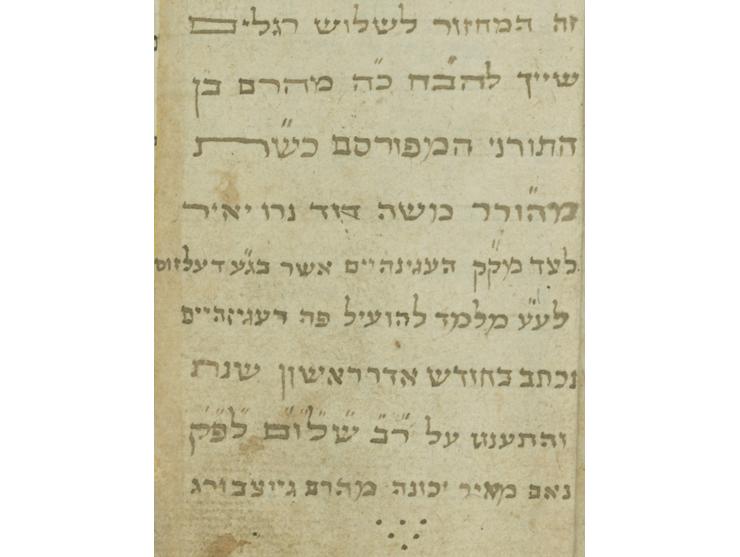 זה המחזור לשלוש רגלים
שייך להב״ח כ״ה מהרם בן
התורני המפורסם כש״ת
מהור״ר משה דוד נרו יאיר
לעד מק״ק העגינהיים אשר בגע דעלזוס
לע״ע מלמד להועיל פה דעגיזהיים
נכתב בחודש אדר ראשון שנת
והתענגו על ר״ב ש״ל״ו״ם ל״פ״ק
נאם מאיר יכונה מהרם גינצבורג